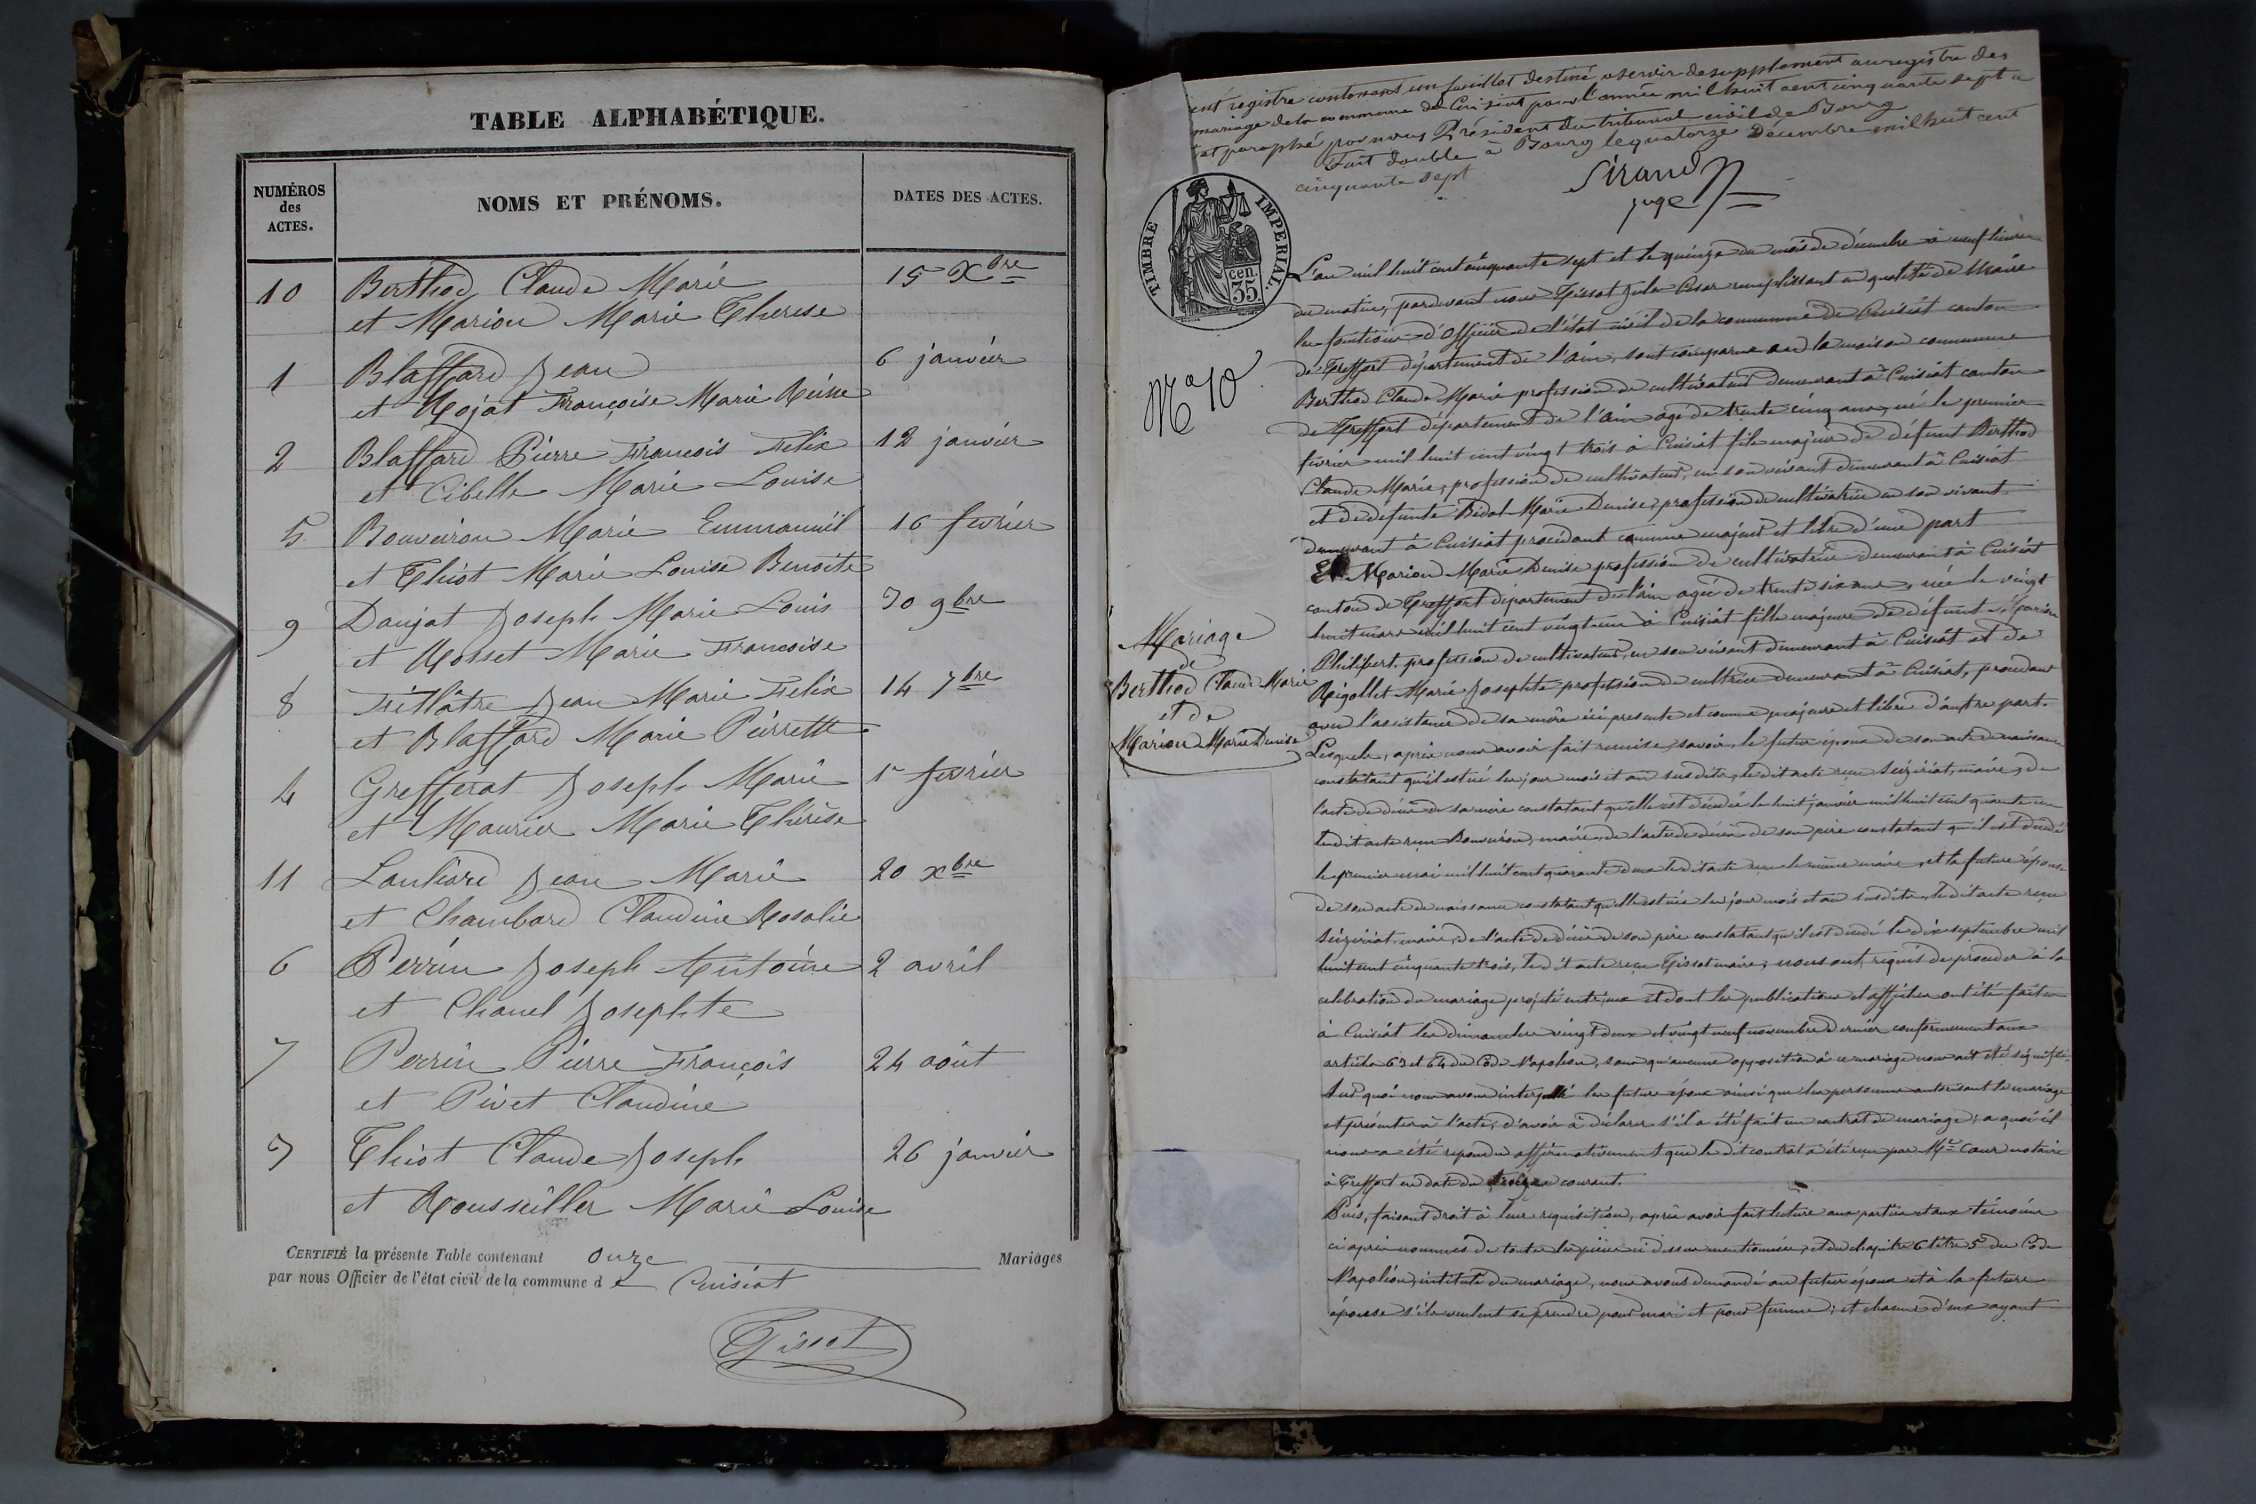 TABLE ALPHABÉTIQUE.
NUMÉROS des ACTES.
NOMS ET PRÉNOMS.
DATES DES ACTES.
10 Berthod Claude Marie 15 Xbre
et Marion Marie Therese
1 Blaffard Jean 6 janvier
et Rojat Françoise Marie Reine
2 Blaffard Pierre François Felix 12 janvier
et Cibelle Marie Louise
5 Bouveiron Marie Emmanuël 16 fevrier
et Thiot Marie Louise Benoite
9 Daujat Joseph Marie Louis 30 9bre
et Rosset Marie Francoise
8 Fillâtre Jean Marie Felix 14 7bre
et Blaffard Marie Pierrette
4 Grefferat Joseph Marie 1er fevrier
et Maurier Marie Thérèse
11 Lauliard Jean Marie 20 xbre
et Chambard Claudine Rosalie
6 Perrin Joseph Antoine 2 avril
et Chanel Josephte
7 Perrin Pierre François 24 août
et Pivet Claudine
3 Thiot Claude Joseph 26 janvier
et Rousseiller Marie Louise
CERTIFIÉ la présente Table contenant onze Mariages
par nous Officier de l'état civil de la commune de Cuisiat
Tissot
registre contenant un feuillet destiné a servir de supplement au registre des
mariage de la commune de Cuisiat pour l'année mil huit cent cinquante sept a
et paraphé par nous Président du tribunal civil de Bourg
Fait double à Bourg le quatorze Décembre mil huit cent
cinquante sept
Sirand
juge
TIMBRE IMPERIAL.
35 cen.
No 10
Mariage
de
Berthod Claude Marie
et de
Marion Marie Denise
L'an mil huit cent cinquante sept et le quinze du mois de décembre à neuf heures
du matin, pardevant nous Tissot Jules César remplissant en qualité de Maire
les fonctions d'Officier de l'état civil de la commune de Cuisiat canton
de Treffort département de l'ain, sont comparus en la maison commune
Berthod Claude Marie profession de cultivateur demeurant à Cuisiat canton
de Treffort département de l'ain agé de trente cinq ans, né le premier
février mil huit cent vingt trois à Cuisiat fils majeur de défunt Berthod
Claude Marie, profession de cultivateur, en son vivant demeurant à Cuisiat
et de defunte Bidal Marie Denise, profession de cultivatrice en son vivant
demeurant à Cuisiat procédant comme majeur et libre d'une part
Et Marion Marie Denise profession de cultivatrice demeurant à Cuisiat
canton de Treffort département de l'ain agée de trente six ans, née le vingt
huit mars mil huit cent vingt un à Cuisiat fille majeure de défunt Marion
Philibert, profession de cultivateur, en son vivant demeurant à Cuisiat et de
Rigollet Marie Josephte profession de cultrice demeurant à Cuisiat, procédant
avec l'assistance de sa mère ici presente et comme majeure et libre d'autre part.
Lesquels, après nous avoir fait remise, savoir, le futur époux de son acte de naissance
constatant qu'il est né les jour mois et an susdits, ledit acte reçu maire, de
l'acte de décès de sa mère constatant qu'elle est décédée le huit janvier mil huit cent quarante un
ledit acte reçu Bouveiron, maire, de l'acte de décès de son père constatant qu'il est décédé
le premier mai mil huit cent quarante deux ledit acte reçu le même maire, et la future épouse
de son acte de naissance constatant qu'elle est née les jour mois et an susdits, ledit acte reçu
maire, de l'acte de décès de son père constatant qu'il est décédé le dix septembre mil
huit cent cinquante trois, ledit acte reçu Tissot maire; nous ont requis de proceder à la
celebration du mariage projeté entr'eux et dont les publications et affiches ont été faites
à Cuisiat les dimanches vingt deux et vingt neuf novembre dernier conformement aux
articles 63 et 64 du Code Napoléon, sans qu'aucune opposition à ce mariage nous ait été signifiée.
Sur quoi nous avons interpellé les futurs époux ainsi que les personnes autorisant le mariage
et présentes à l'acte, d'avoir à déclarer s'il a été fait un contrat de mariage; a quoi il
nous a été repondu affirmativement que ledit contrat a été reçu par Me Caur notaire
à Treffort en date du treize courant.
Puis, faisant droit à leur requisition, après avoir fait lecture aux parties et aux témoins
ci après nommés de toutes les pièces ci dessus mentionnées, et du chapitre 6 titre 5 du Code
Napoléon, intitulé du mariage, nous avons demandé au futur époux et à la future
épouse s'ils veulent se prendre pour mari et pour femme; et chacun d'eux ayant